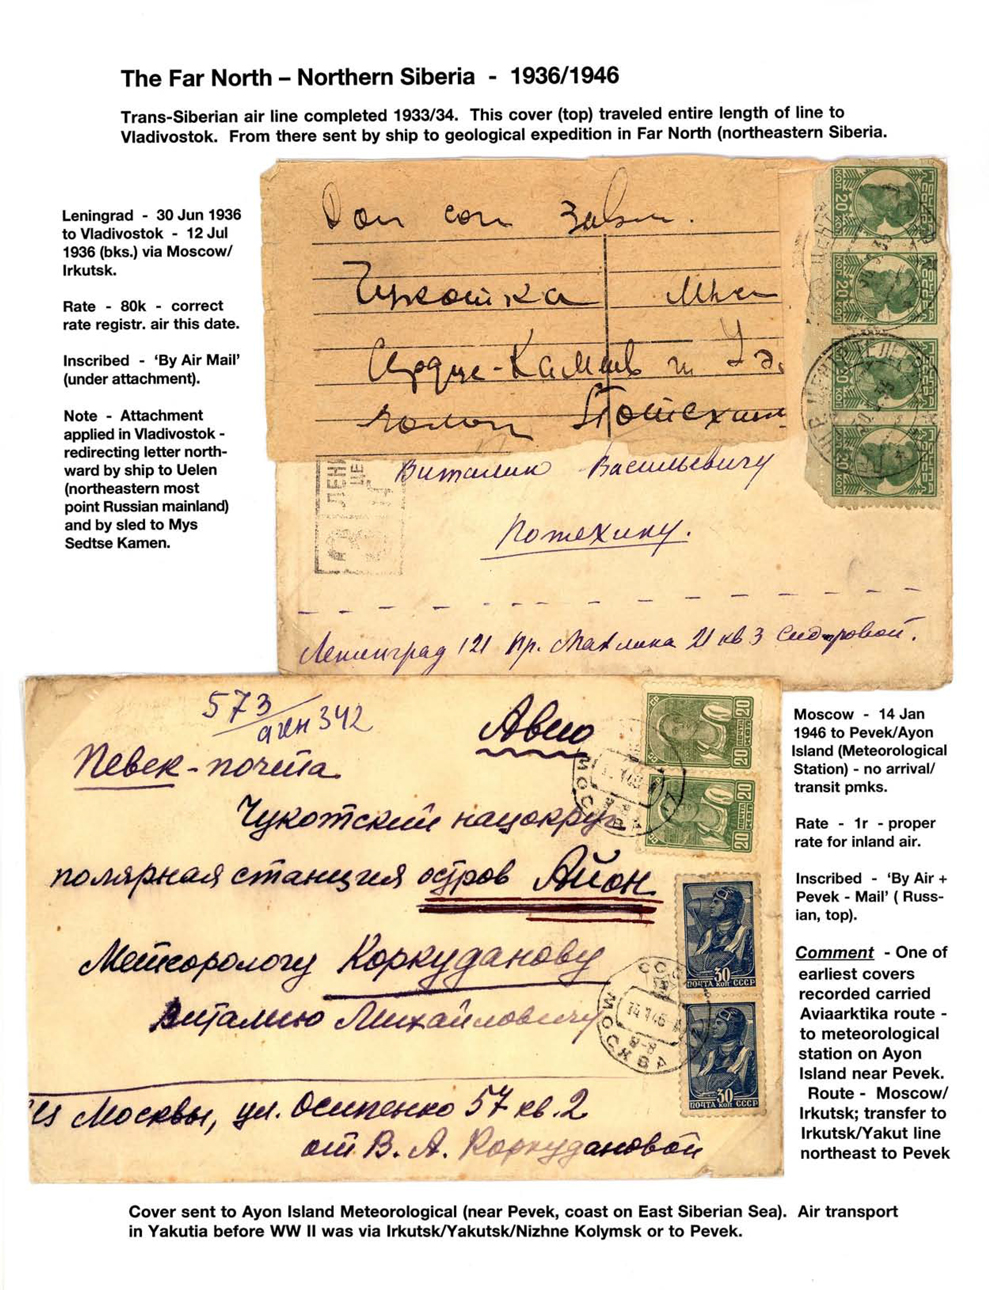 The Far North – Northern Siberia - 1936/1946
Trans-Siberian air line completed 1933/34. This cover (top) traveled entire length of line to
Vladivostok. From there sent by ship to geological expedition in Far North (northeastern Siberia.
Leningrad - 30 Jun 1936
to Vladivostok - 12 Jul
1936 (bks.) via Moscow/
Irkutsk.
Rate - 80k - correct
rate registr. air this date.
Inscribed - ‘By Air Mail’
(under attachment).
Note - Attachment
applied in Vladivostok -
redirecting letter north-
ward by ship to Uelen
(northeastern most
point Russian mainland)
and by sled to Mys
Sedtse Kamen.
Чукотка Мыс
Сердце-Камень
Виталию Васильевичу
Потехину.
Ленинград 121 Пр. Маклина 21 кв 3 Сидоровой.
20
20
20
20
573/
342
Авио
Певек-почта
Чукотский нацокруг
полярная станция остров Айон
Метеорологу Коркуданову
Виталию Михайловичу
из Москвы, ул. Осипенко 57 кв. 2
от В. А. Коркудановой
20
20
30
ПОЧТА КОП СССР
30
ПОЧТА КОП СССР
МОСКВА
МОСКВА
Moscow - 14 Jan
1946 to Pevek/Ayon
Island (Meteorological
Station) - no arrival/
transit pmks.
Rate - 1r - proper
rate for inland air.
Inscribed - ‘By Air +
Pevek - Mail’ ( Russ-
ian, top).
Comment - One of
earliest covers
recorded carried
Aviaarktika route -
to meteorological
station on Ayon
Island near Pevek.
Route - Moscow/
Irkutsk; transfer to
Irkutsk/Yakut line
northeast to Pevek
Cover sent to Ayon Island Meteorological (near Pevek, coast on East Siberian Sea). Air transport
in Yakutia before WW II was via Irkutsk/Yakutsk/Nizhne Kolymsk or to Pevek.